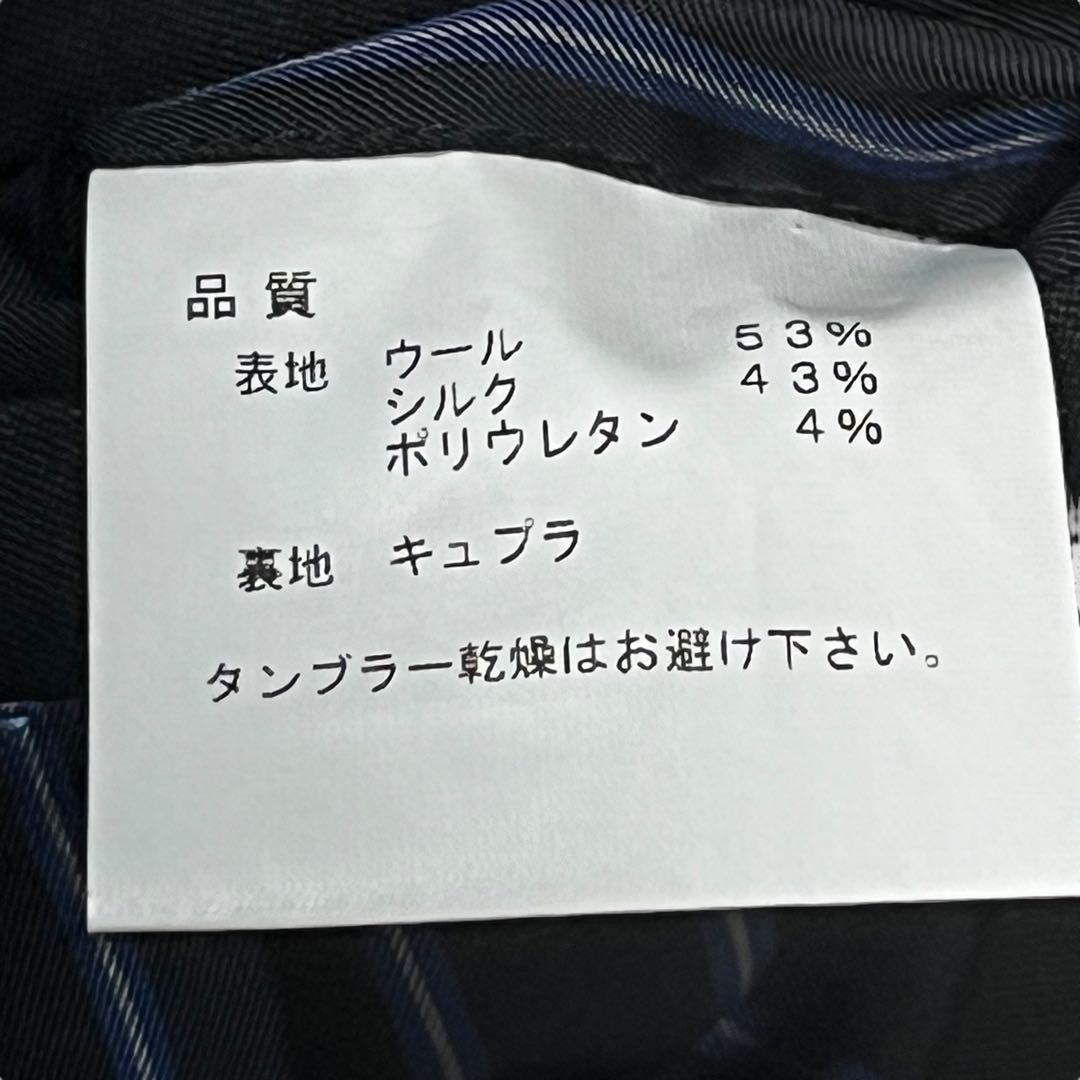 品質
表地 ウール 53%
シルク 43%
ポリウレタン 4%
裏地 キュプラ
タンブラー乾燥はお避け下さい。